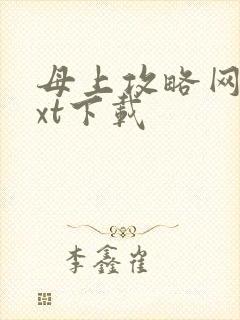 母上攻略网
xt下载
李鑫雀